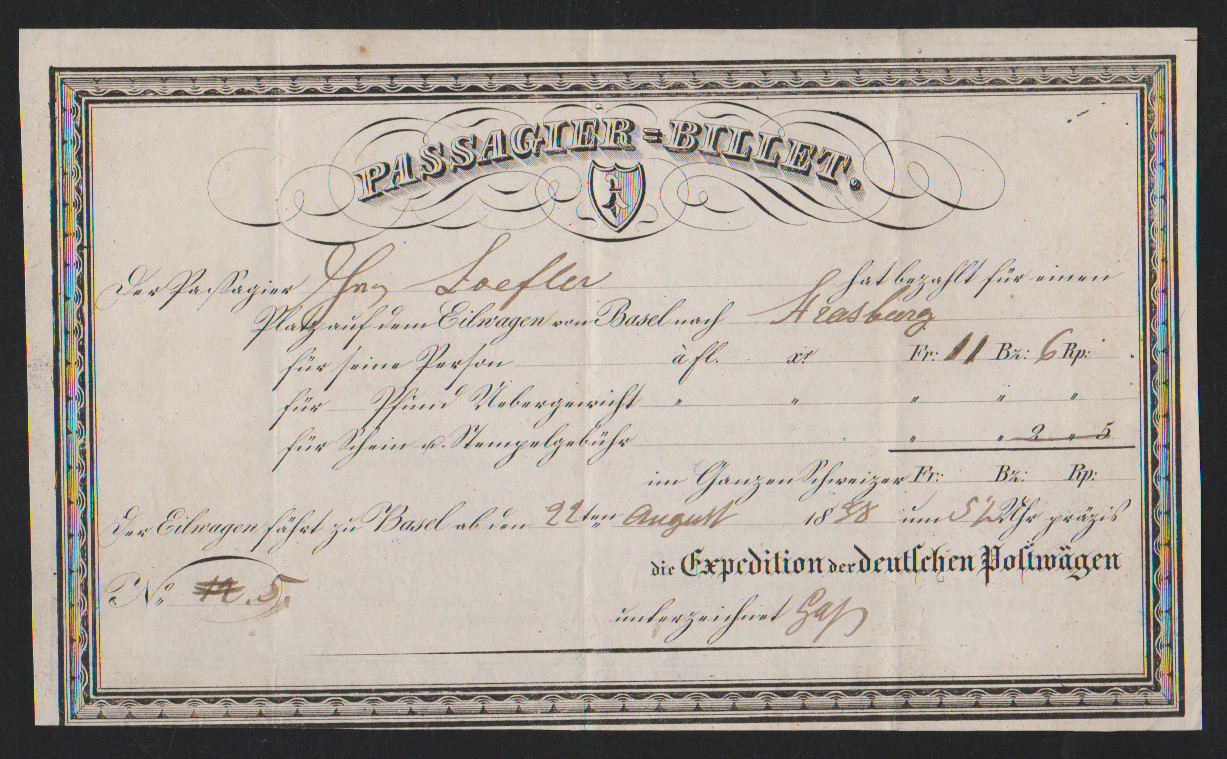 PASSAGIER=BILLET.
Der Passagier Loefler hat bezahlt für einen
Platz auf dem Eilwagen von Basel nach Strasburg
für seine Person à fl. xr Fr: 11 Bz: 6 Rp:
für Pfund Uebergewicht " " " " "
für Schein u. Stempelgebühr " " 2 " 5
im Ganzen Schweizer Fr: Bz: Rp:
Der Eilwagen fährt zu Basel ab den 22ten August 18 um 5 ½ Uhr präzis
die Expedition der deutschen Postwägen
No. 5.
unterzeichnet